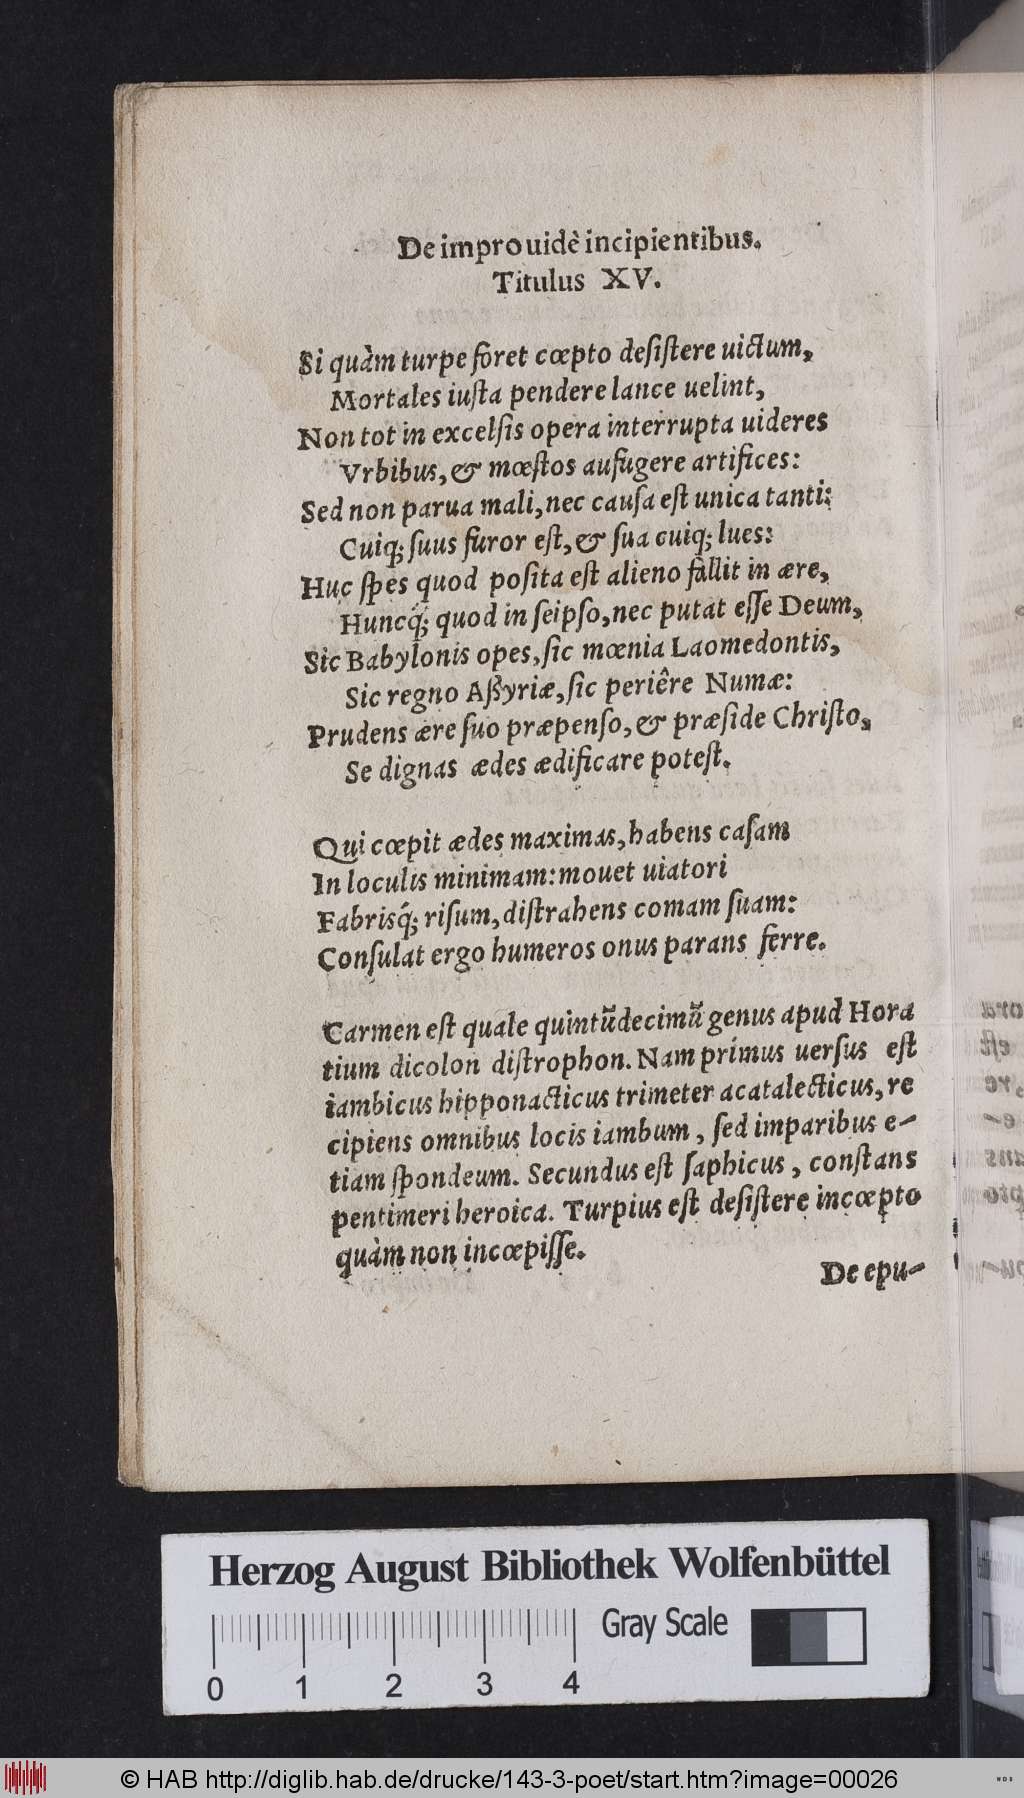 De improuidè incipientibus.
Titulus XV.
Si quàm turpe foret cœpto desistere uictum,
Mortales iusta pendere lance uelint,
Non tot in excelsis opera interrupta uideres
Vrbibus, & mœstos aufugere artifices:
Sed non parua mali, nec causa est unica tanti:
Cuiq; suus furor est, & sua cuiq; lues:
Huc spes quod posita est alieno fallit in ære,
Huncq́; quod in seipso, nec putat esse Deum,
Sic Babylonis opes, sic mœnia Laomedontis,
Sic regno Aßyriæ, sic periêre Numæ:
Prudens ære suo præpenso, & præside Christo,
Se dignas ædes ædificare potest.
Qui cœpit ædes maximas, habens casam
In loculis minimam: mouet uiatori
Fabrisq́; risum, distrahens comam suam:
Consulat ergo humeros onus parans ferre.
Carmen est quale quintũdecimũ genus apud Hora
tium dicolon distrophon. Nam prímus uersus est
iambicus hipponacticus trimeter acatalecticus, re
cipiens omnibus locis iambum, sed imparibus e-
tiam spondeum. Secundus est saphicus, constans
pentimeri heroica. Turpius est desistere incœpto
quàm non incœpisse.
De epu-
Herzog August Bibliothek Wolfenbüttel
Gray Scale
0 1 2 3 4
© HAB http://diglib.hab.de/drucke/143-3-poet/start.htm?image=00026